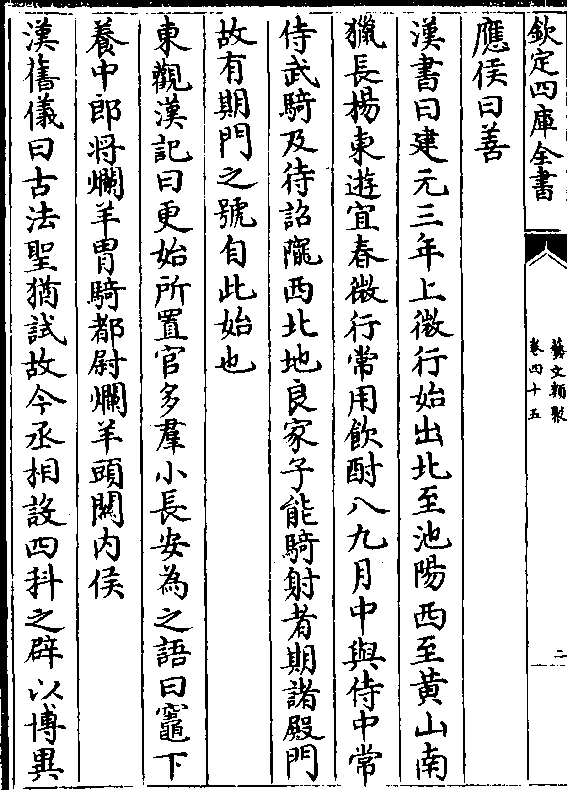 欽定四庫全書
藝文類聚
卷四十五
二
應侯曰善
漢書曰建元三年上微行始出北至池陽西至黃山南
獵長楊東遊宜春微行常用飲酎八九月中與侍中常
侍武騎及待詔隴西北地良家子能騎射者期諸殿門
故有期門之號自此始也
東觀漢記曰更始所置官多羣小長安為之語曰竈下
養中郎将爛羊胃騎都尉爛羊頭關内侯
漢舊儀曰古法聖猶試故今丞相設四科之辟以博異